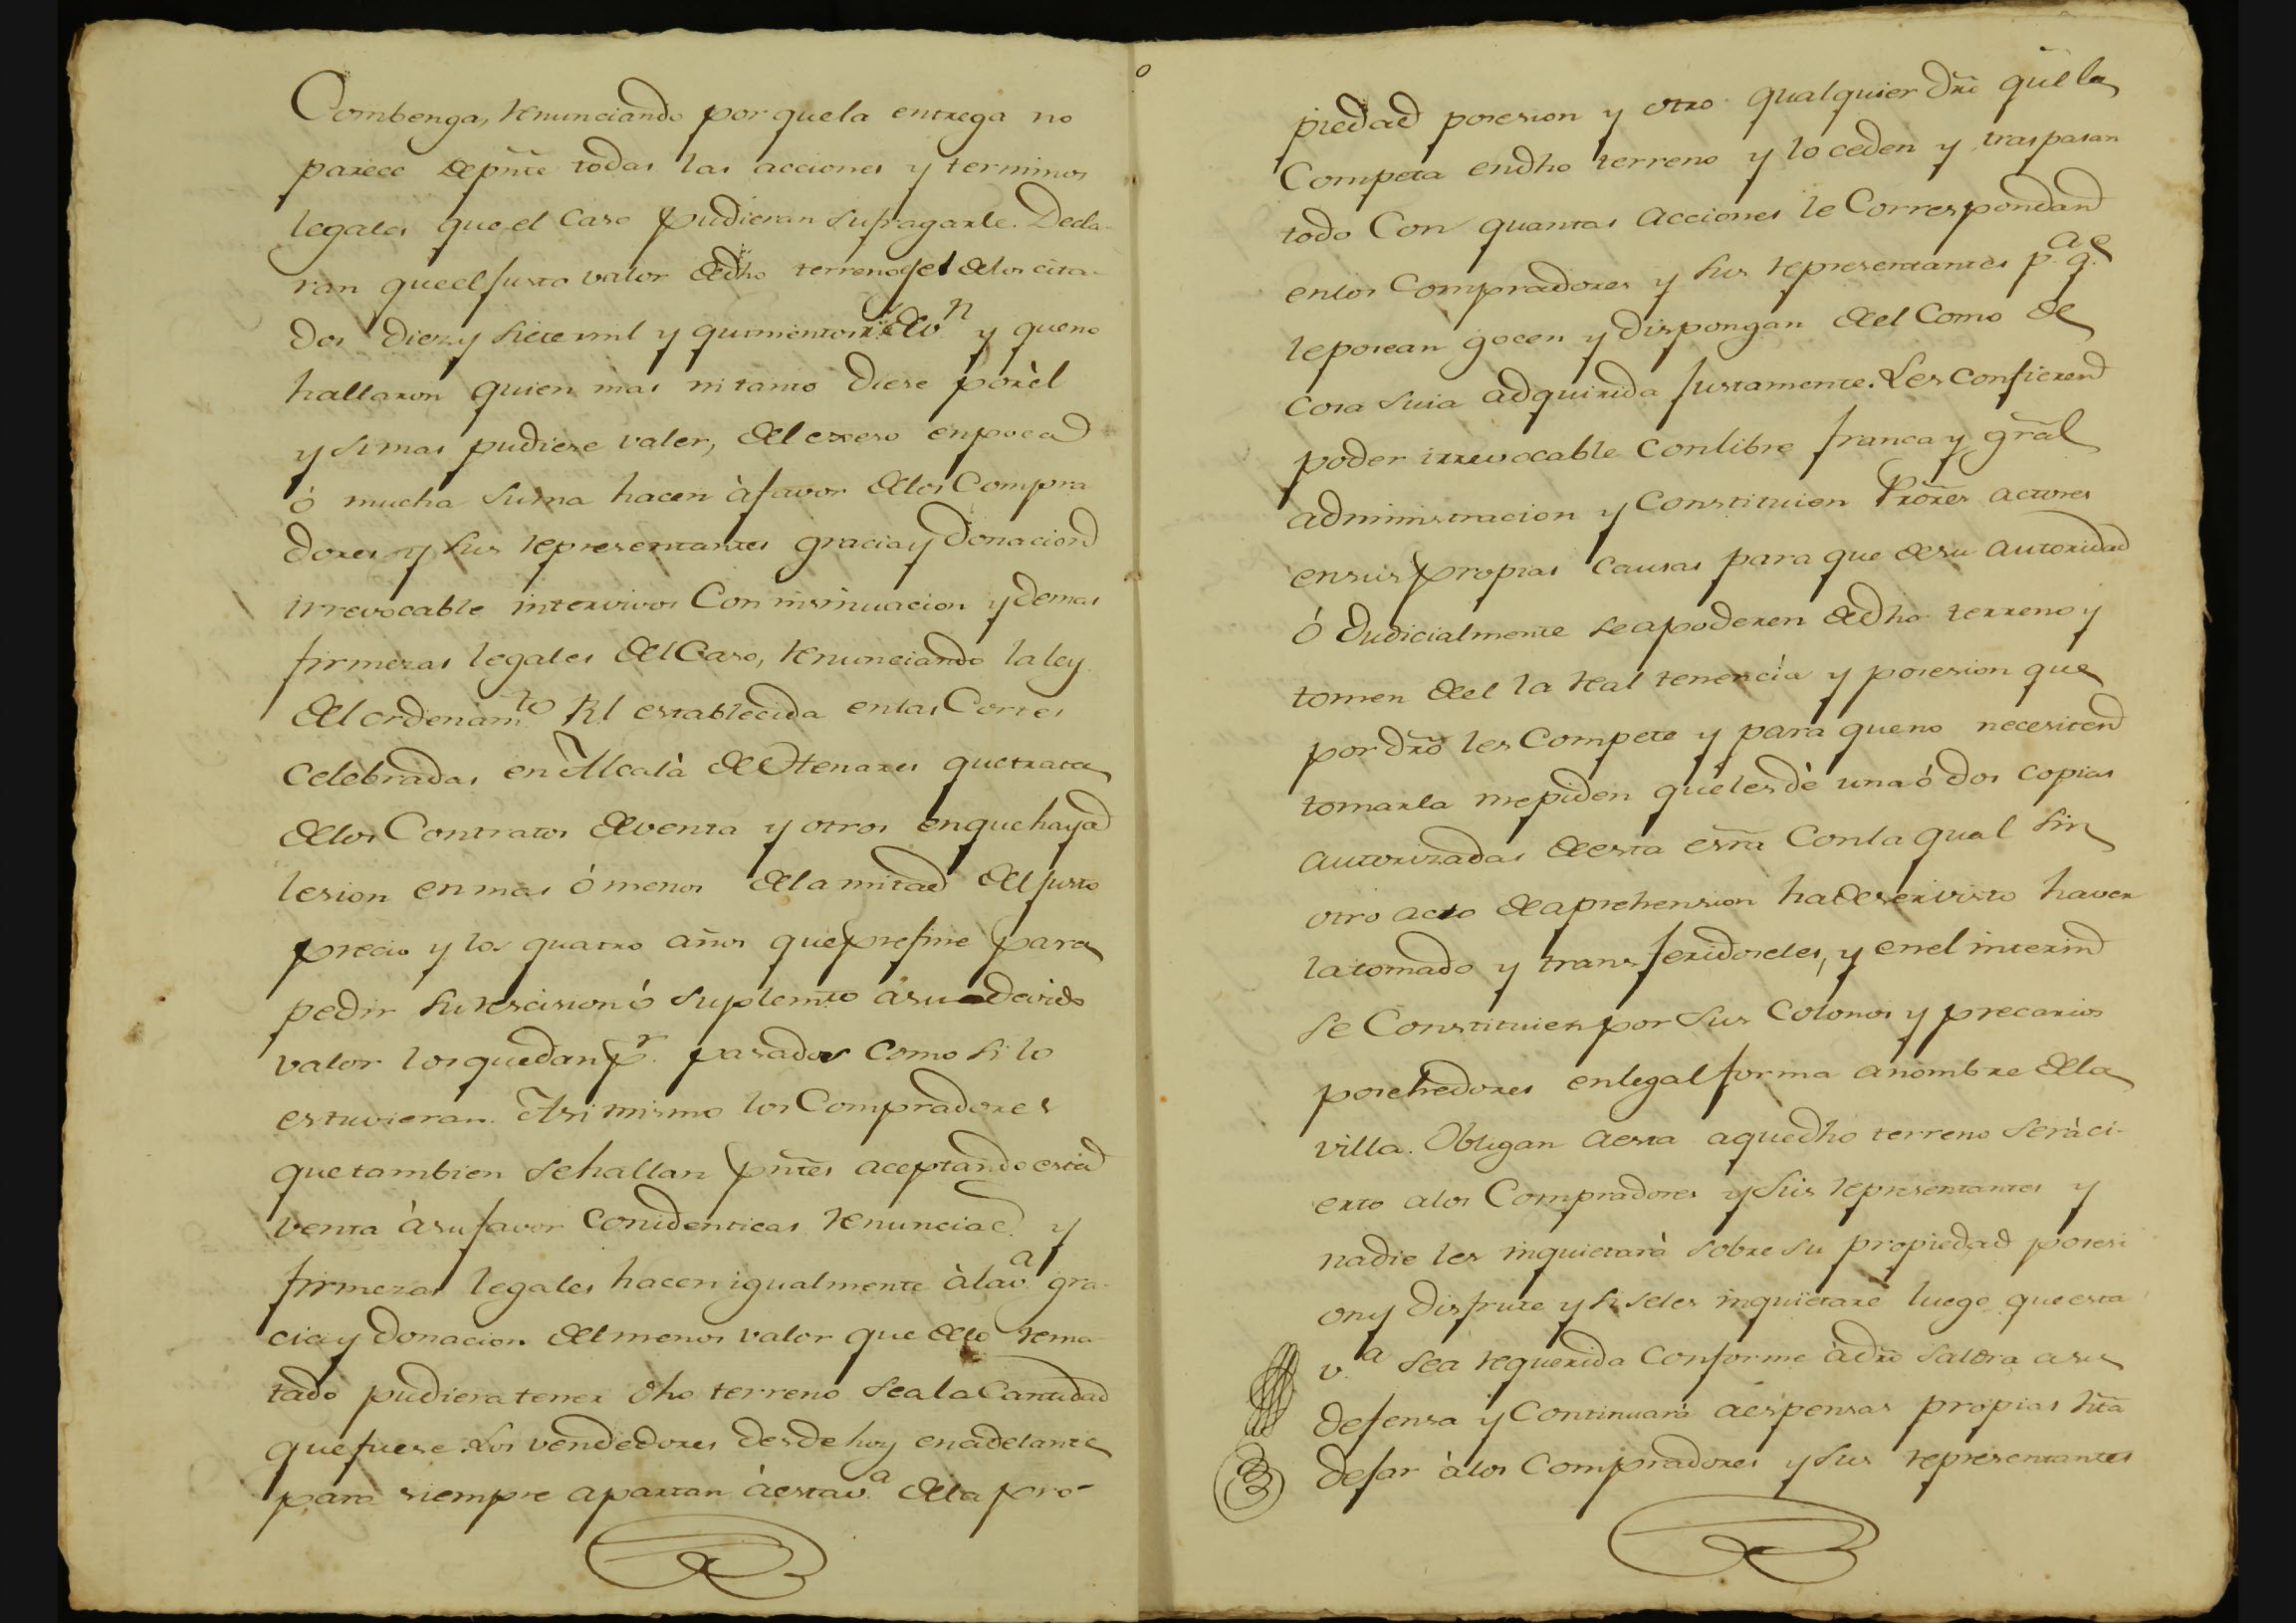 Combenga, renunciando por que la entrega no
parece de pñte todas las acciones y terminos
legales que el caso pudieran sufragarle. Decla-
ran que el justo valor de dho terreno es el de los cita-
dos diez y siete mil y quinientos rs. de v.n y que no
hallaron quien mas ni tanto diese por èl
y si mas pudiese valer, del exceso en poca
ó mucha suma hacen à favor de los Compra
dores y sus representantes gracia y Donacion
irrevocable intervivos Con insinuacion y demas
firmezas legales del Caso, renunciando la ley
del ordenam.to Rl establecida en las Cortes
Celebradas en Alcalà de Henares que trata
de los Contratos de venta y otros en que haya
lesion en mas ó menos de la mitad del justo
precio y los quatro años que prefine para
pedir su rescision ó suplemto a su devido
valor los que dan p.r pasados como si lo
estuvieran. Asi mismo los Compradores
que tambien se hallan pñtes aceptando esta
venta à su favor Con identicas renunciac.s y
firmezas legales hacen igualmente à la v.a gra-
cia y Donacion del menos valor que de lo rema-
tado pudiera tener dho terreno sea la Cantidad
que fuese. Los vendedores desde hoy en adelante
para siempre apartan à esta v.a de la pro-
piedad posesion y otro qualquier dro què la
Competa en dho terreno y lo ceden y traspasan
todo Con quantas acciones le Correspondan
en los Compradores y sus representantes p.a q.e
le posean gocen y dispongan de el Como de
cosa suia adquirida justamente. Les Confieren
poder irrevocable con libre franca y gral
administracion y Constituien Prores actores
en sus propias causas para que de su autoridad
ó Judicialmente se apoderen de dho terreno y
tomen de el la real tenencia y posesion que
por dro les Compete y para que no necesiten
tomarla me piden què les dè una ó dos copias
autorizadas de esta esra Con la qual sin
otro acto de aprehension ha de ser visto haver
la tomado y transferidoseles, y en el interin
se Constituien por sus Colonos y precarios
posehedores en legal forma a nombre de la
villa. Obligan a esta a que dho terreno serà ci-
erto a los Compradores y sus representantes y
nadie les inquietarà sobre su propiedad posesi
on y disfrute y si se les inquietare luego que esta
v.a sea requerida Conforme à dro saldra a su
defensa y Continuarà a espensas propias hta
dejar à los Compradores y sus representantes